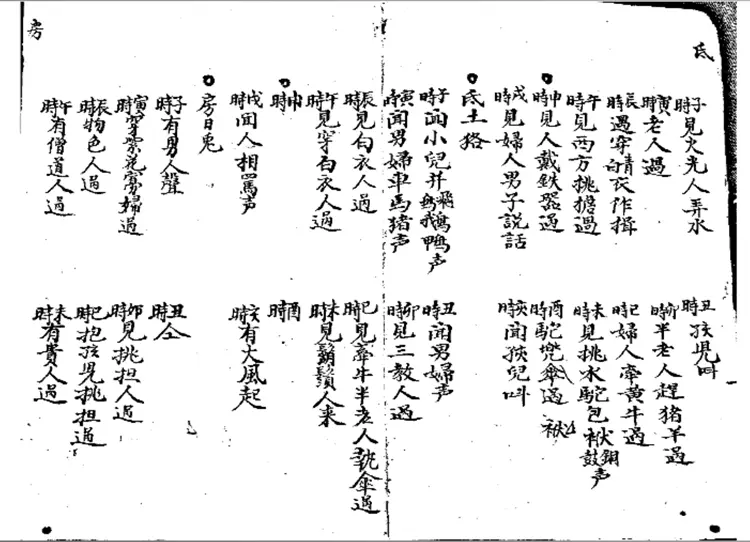 氐
子時見火光人弄水
丑時孩児叫
寅時老人過
卯時半老人趕猪羊過
辰時遇穿青衣作揖
巳時婦人牽黄牛過
午時見西方挑擔過
未時見挑水駝包袱銅鼓声
申時見人戴鉄器過
酉時駝兠傘過 袱
戌時見婦人男子說話
亥時聞孩兒叫
氐土狢
子時面小兒并飛鵝鴨声
丑時聞男婦声
寅時聞男婦車馬猪声
卯時見三教人過
辰時見白衣人過
巳時見牽牛半老人執傘過
午時見穿白衣人過
未時見鬍鬚人来
申時
酉時
戌時面人相罵声
亥時有大風起
房日兎
子時有男人聲
丑時仝
寅時穿紫花寡婦過
卯時見挑担人過
辰時物色人過
巳時抱孩児挑担過
午時有僧道人過
未時有貴人過
房